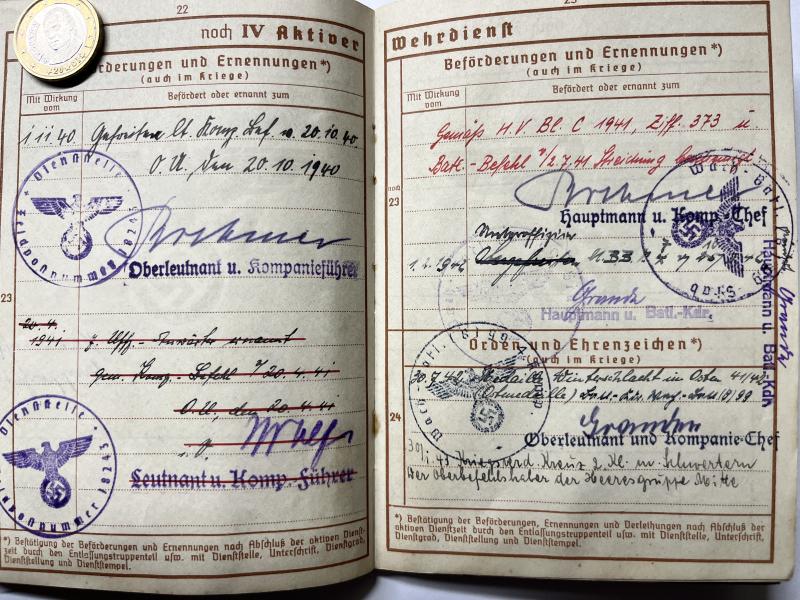 22
noch IV Aktiver
Beförderungen und Ernennungen*)
(auch im Kriege)
Mit Wirkung vom
Befördert oder ernannt zum
1 11 40 Gefreiten lt. Komp. Bef. v. 20.10.40
O.U., den 20.10.1940
Dienststelle
Feldpostnummer
Oberleutnant u. Kompanieführer
23
20.4.
1941 z. Uffz.-Anwärter ernannt
gem. Komp.-Befehl v. 20.4.41
O.U., den 20.4.41
Dienststelle
Feldpostnummer
Leutnant u. Komp.-Führer
*) Bestätigung der Beförderungen und Ernennungen nach Abschluß der aktiven Dienst-
zeit durch den Entlassungstruppenteil usw. mit Dienststelle, Unterschrift, Dienstgrad,
Dienststellung und Dienststempel.
23
Wehrdienst
Beförderungen und Ernennungen*)
(auch im Kriege)
Mit Wirkung vom
Befördert oder ernannt zum
Gemäß H.V. Bl. C 1941, Ziff. 373 u
Batl.-Befehl v. 2.7.41 Streichung
noch
23
Hauptmann u. Komp.-Chef
Unteroffizier
1942
Hauptmann u. Batl.-Kdr.
Hauptmann u. Batl.-Kdr.
Orden und Ehrenzeichen*)
(auch im Kriege)
24
20.7.42 Medaille Winterschlacht im Osten 41/42
(Ostmedaille)
Oberleutnant und Kompanie-Chef
30/1.43 Kriegsverd. Kreuz 2. Kl. m. Schwertern
Der Oberbefehlshaber der Heeresgruppe Mitte
*) Bestätigung der Beförderungen, Ernennungen und Verleihungen nach Abschluß der
aktiven Dienstzeit durch den Entlassungstruppenteil usw. mit Dienststelle, Unterschrift,
Dienstgrad, Dienststellung und Dienststempel.